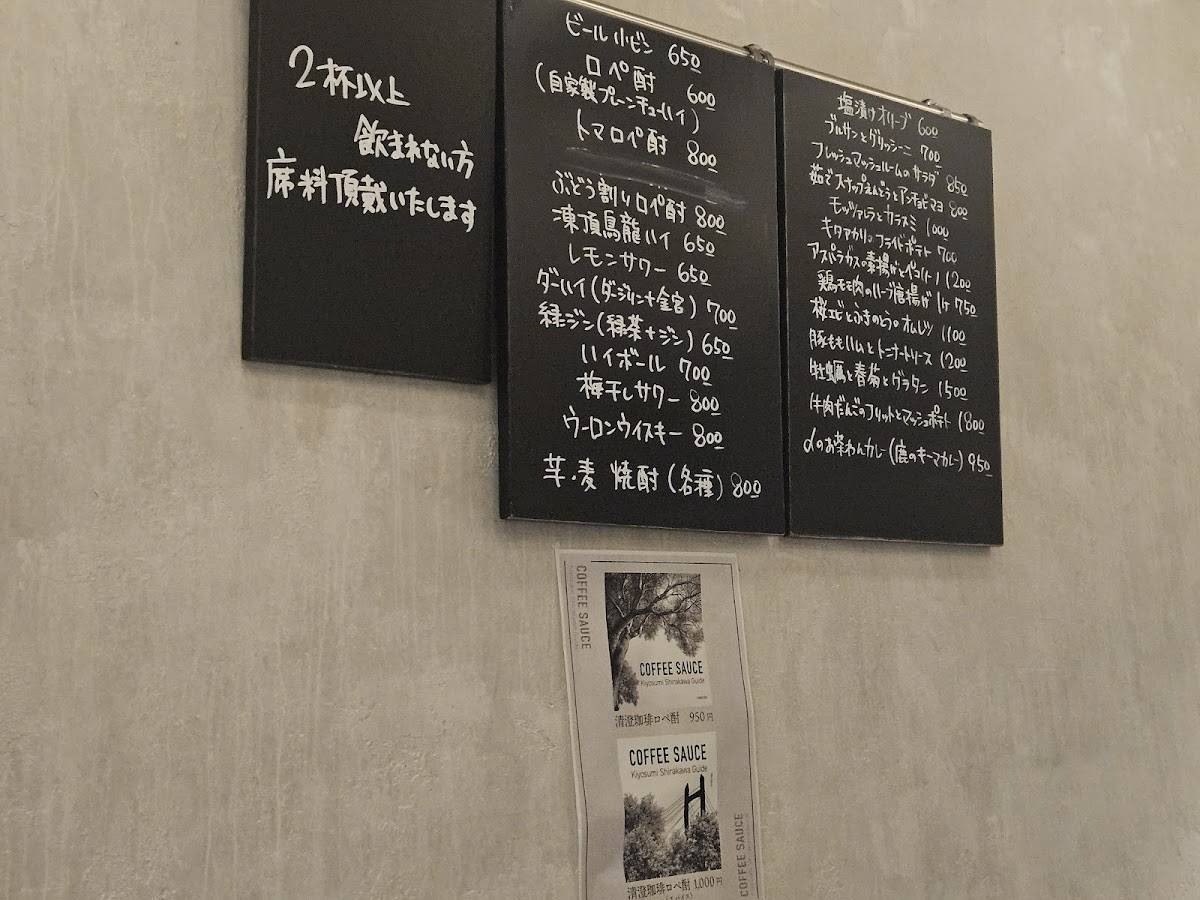 2杯以上
飲まれない方
席料頂戴いたします
ビール小ビン 650
ロペ酎 600
(自家製プレーンチューハイ)
トマロペ酎 800
ぶどう割りロペ酎 800
凍頂烏龍ハイ 650
レモンサワー 650
ダーハイ(ダージリン+金宮) 700
緑ジン(緑茶+ジン) 650
ハイボール 700
梅干しサワー 800
ウーロンウイスキー 800
芋・麦 焼酎(各種) 800
塩漬けオリーブ 600
ブルサンとグリッシーニ 700
フレッシュマッシュルームのサラダ 850
茹でスナップえんどうとアンチョビマヨ 800
モッツァレラとカラスミ 1000
キタアカリのフライドポテト 700
アスパラガスの素揚げとペコリーノ 1200
鶏モモ肉のハーブ唐揚げ 1ヶ 750
桜エビとふきのとうのオムレツ 1100
豚ももハムとトンナートソース 1200
牡蠣と春菊とグラタン 1500
牛肉だんごのフリットとマッシュポテト 1800
のお茶わんカレー(鹿のキーマカレー) 950
COFFEE SAUCE
COFFEE SAUCE
Kiyosumi Shirakawa Guide
清澄珈琲ロペ酎 950円
COFFEE SAUCE
Kiyosumi Shirakawa Guide
清澄珈琲ロペ酎 1,000円
COFFEE SAUCE